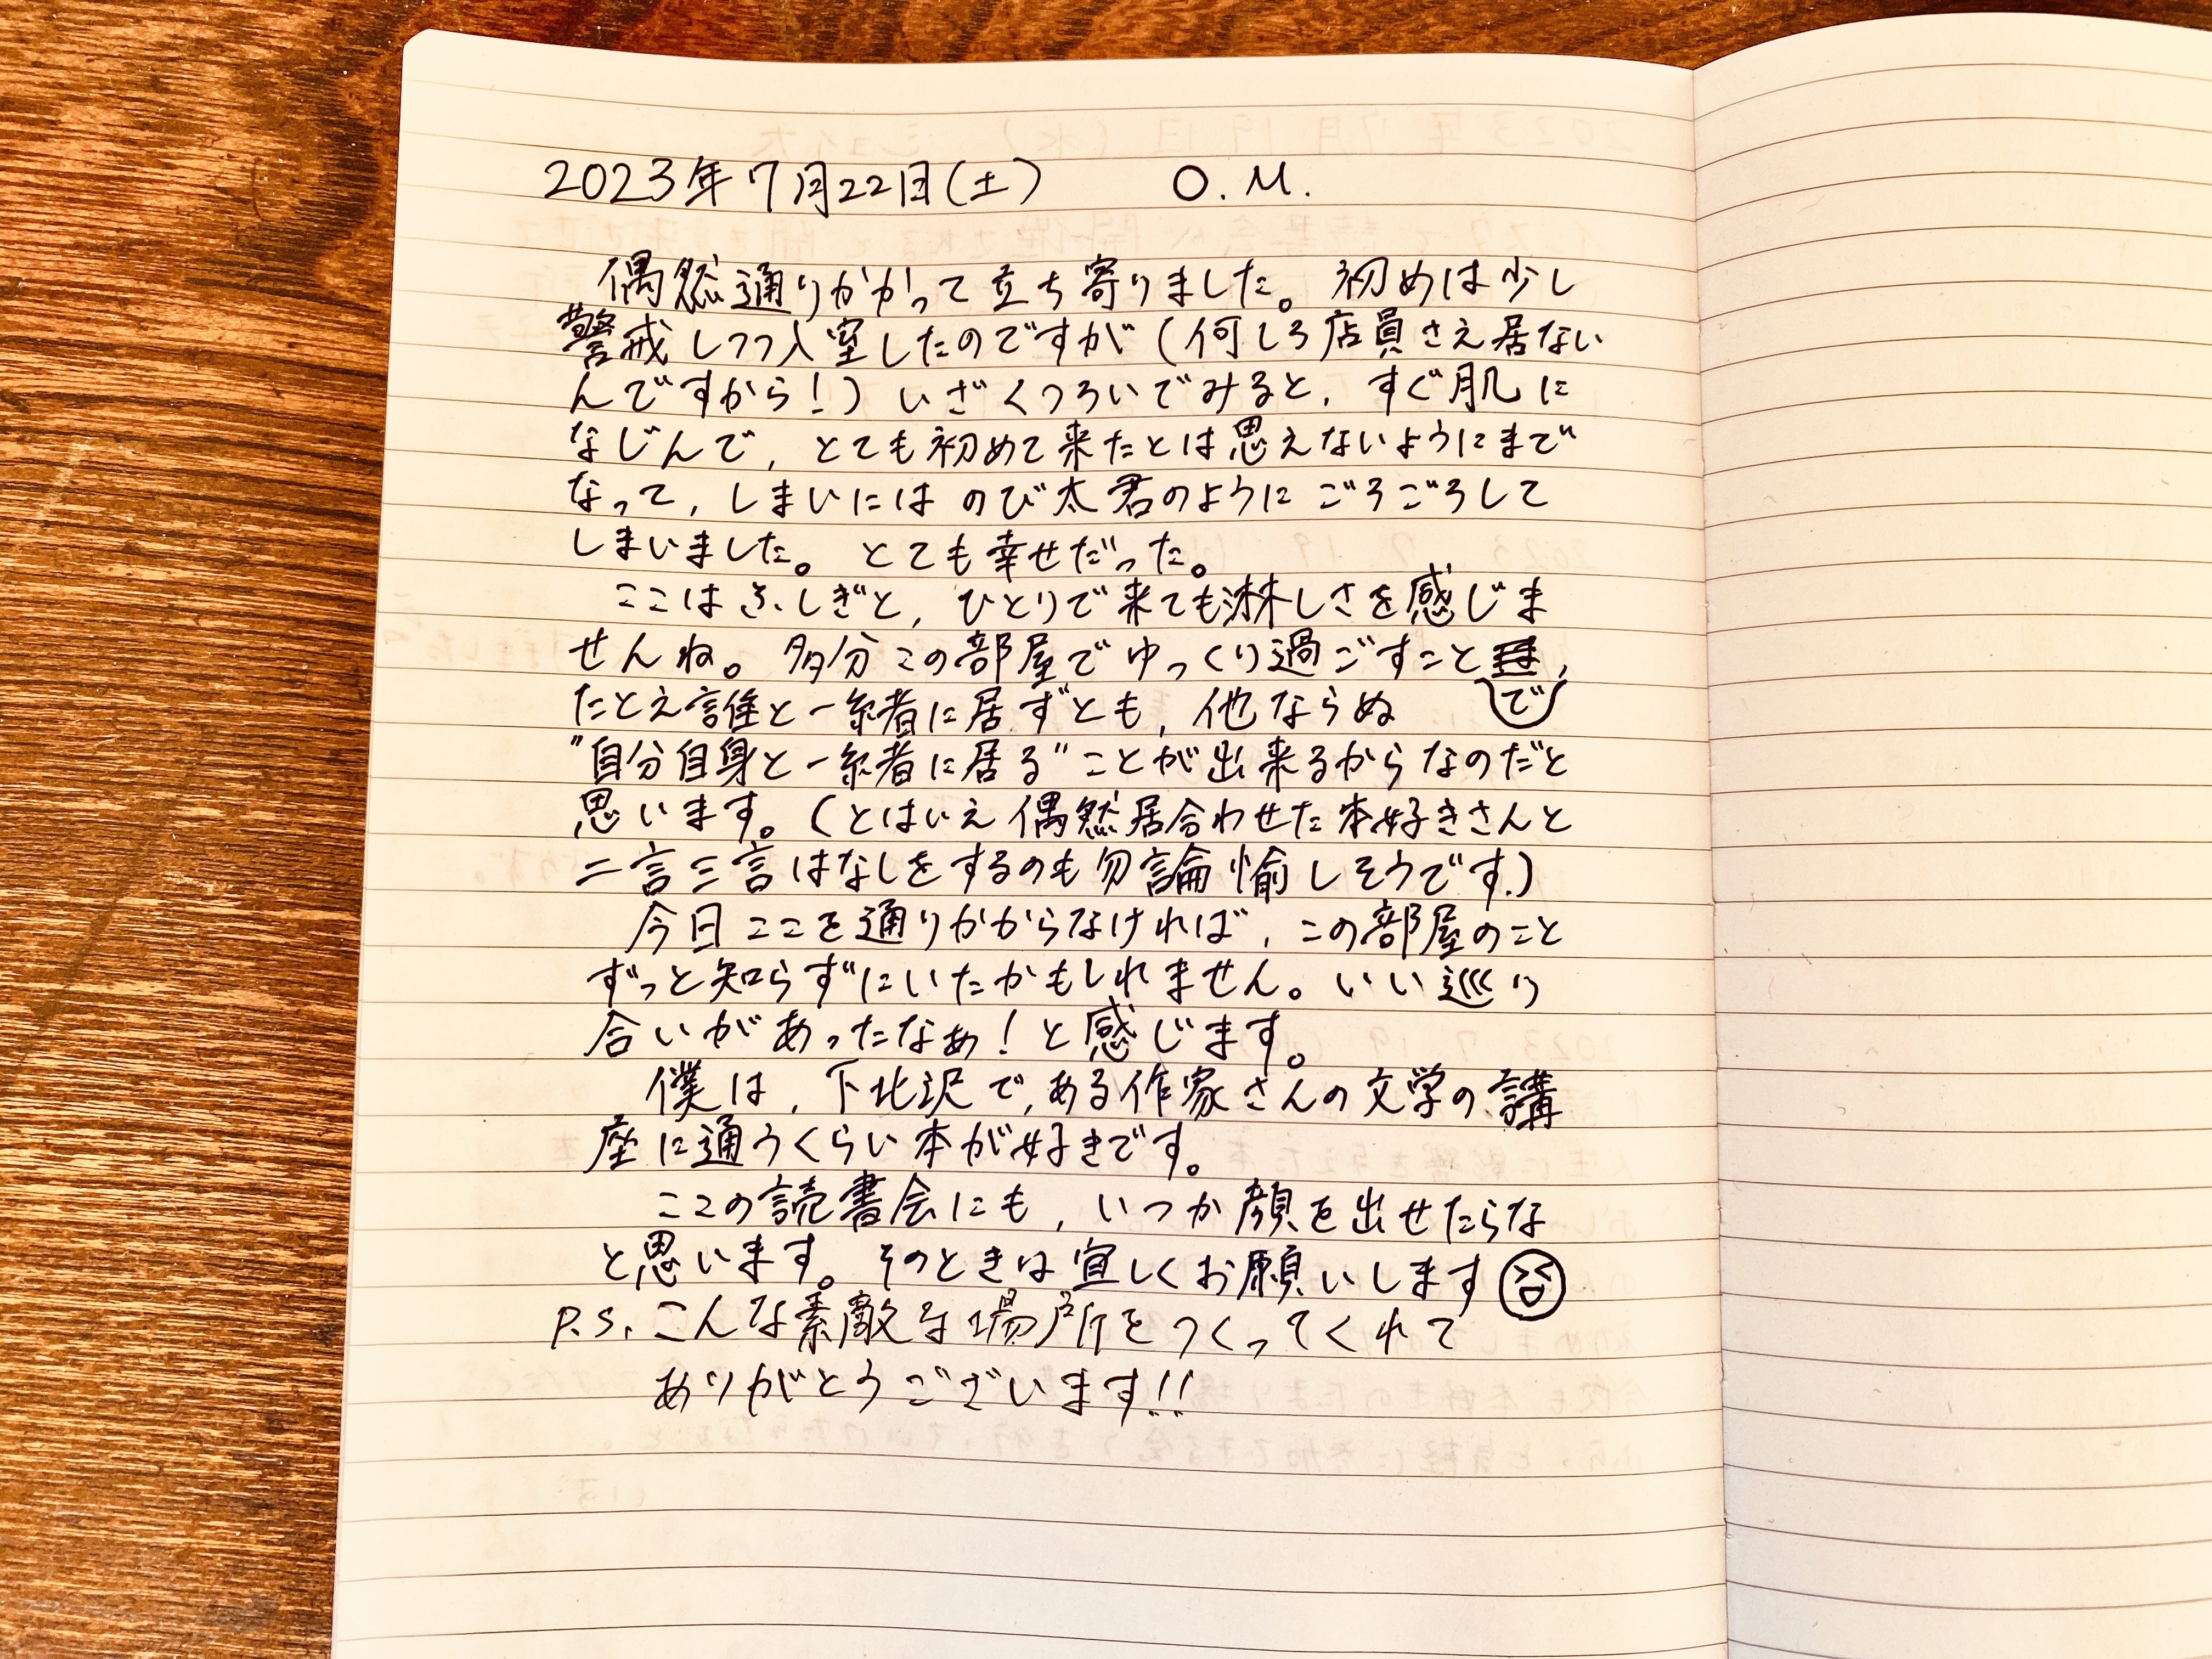 2023年7月22日(土)　O.M.
偶然通りかかって立ち寄りました。初めは少し
警戒しつつ入室したのですが(何しろ店員さえ居ない
んですから!)いざくつろいでみると,すぐ肌に
なじんで,とても初めて来たとは思えないようにまで
なって,しまいにはのび太君のようにごろごろして
しまいました。とても幸せだった。
ここはふしぎと,ひとりで来ても淋しさを感じま
せんね。多分この部屋でゆっくり過ごすことで,
たとえ誰と一緒に居ずとも,他ならぬ
"自分自身と一緒に居る"ことが出来るからなのだと
思います。(とはいえ偶然居合わせた本好きさんと
二言三言はなしをするのも勿論愉しそうです.)
今日ここを通りかからなければ,この部屋のこと
ずっと知らずにいたかもしれません。いい巡り
合いがあったなぁ!と感じます。
僕は,下北沢で,ある作家さんの文学の講
座に通うくらい本が好きです。
ここの読書会にも,いつか顔を出せたらな
と思います。そのときは宜しくお願いします
P.S.こんな素敵な場所をつくってくれて
ありがとうございます!!